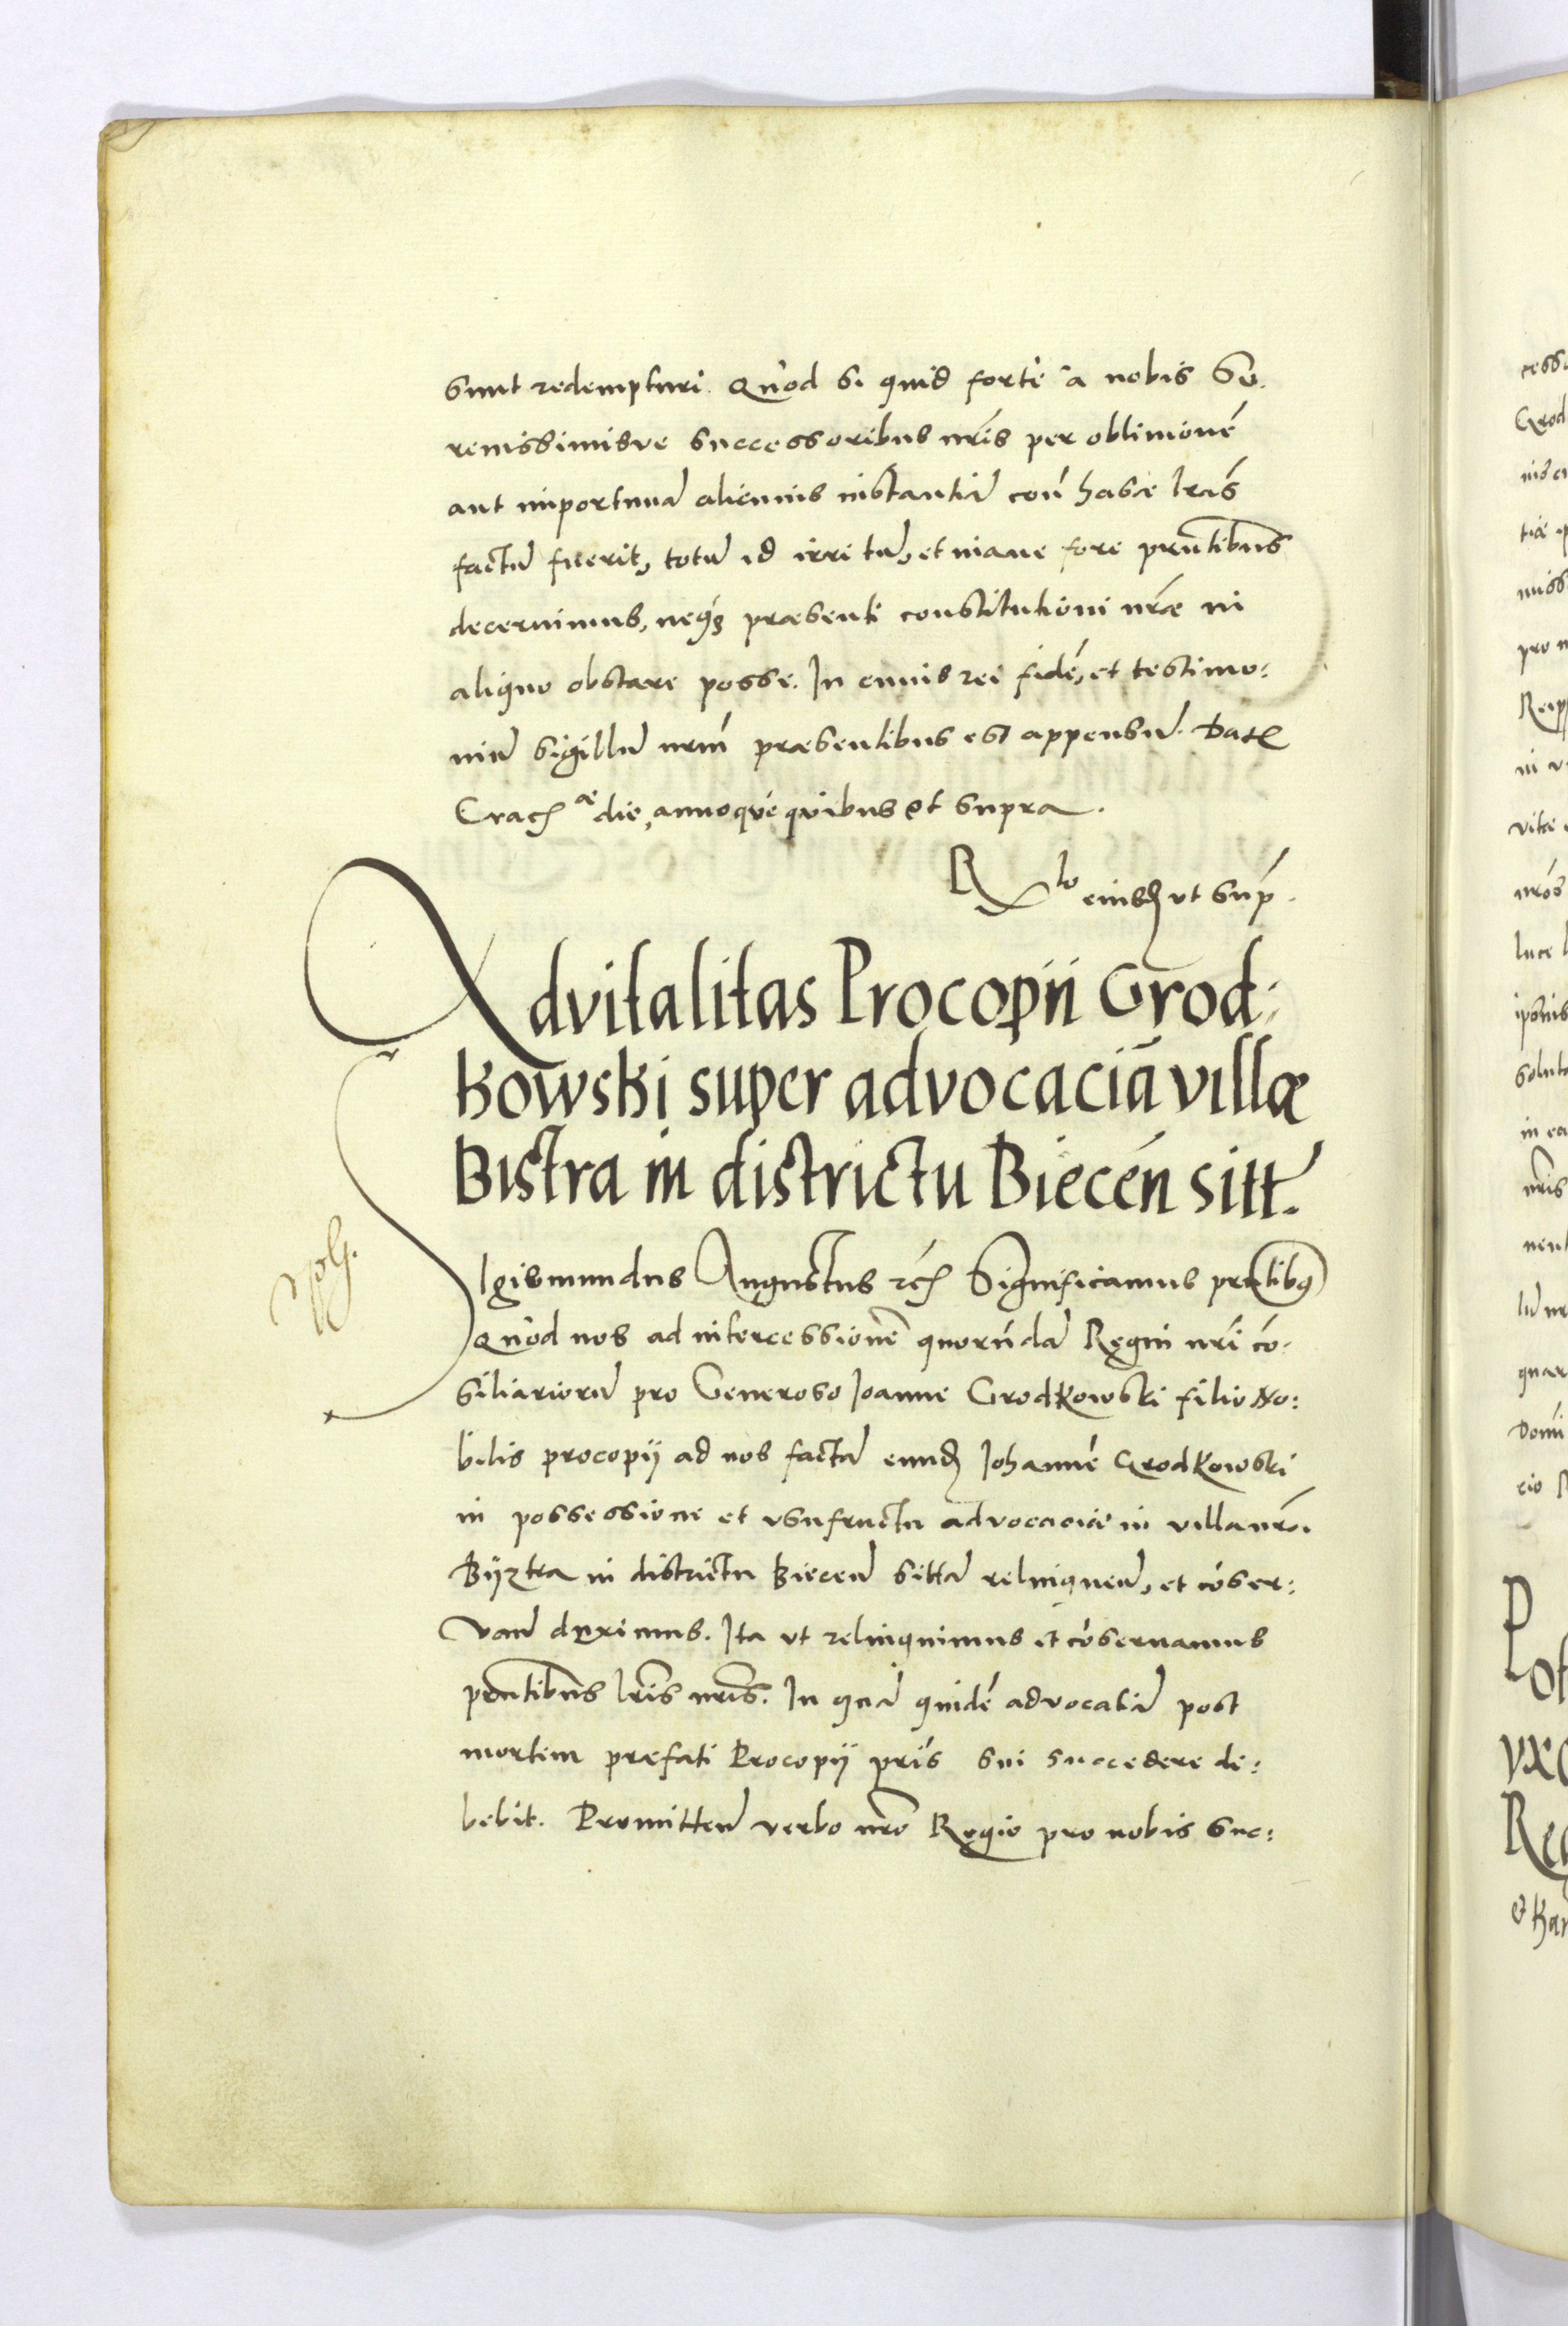 sunt redempturi. Quod si quid fortè à nobis Se-
renissimisve successoribus nr̃is per oblivionẽ
aut importunã alicuius instantiã coñ hasce lr̃as
factũ fuerit, totũ id irritũ, et inane fore pr̃ntibus
decernimus, neq₃ præsenti constitutioni nr̃æ in
aliquo obstare posse. In cuius rei fidẽ, et testimo:
niũ sigillũ nrm̃ præsentibus est appensũ. Dat
Crac æ die, annoque quibus et supra.
R lo eiusd ut sup̃.
Advitalitas Procopii Grod:
kowski super advocaciã villæ
Bistra in districtu Biecen̄ sitt.
Sigismundus Augustus rc̃ Significamus prntib9
Quod nos ad intercessionẽ quorundã Regni nr̃i cõ-
siliariorũ pro Generoso Joanne Grodkowski filio No:
bilis procopij ad nos factã eund Johannẽ Grodkowski
in possessione et usufructu advocaciæ in villa nr̃a
Bijztra in districtu Biecen̄ sittã relinquen̄, et cõser:
van̄ duximus. Ita ut relinquimus et cõservamus
prntibus lr̃is nr̃is. In quã quidẽ advocatiã post
mortem præfati Procopij pr̃is sui succedere de:
bebit. Promitten̄ verbo nr̃o Regio pro nobis suc: